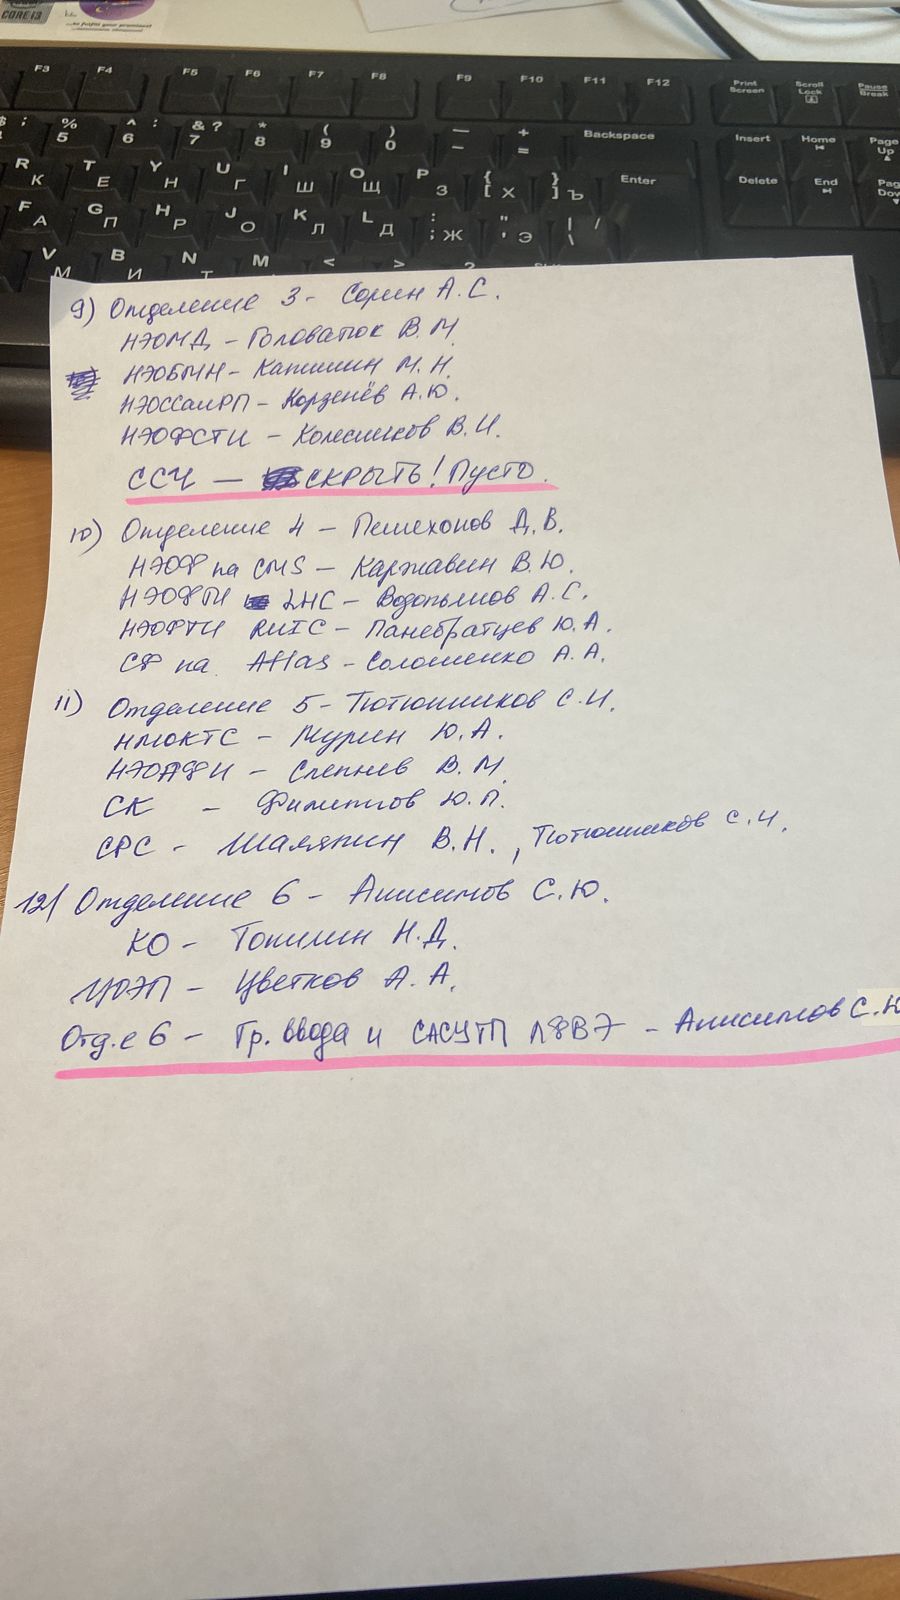 CORE i3
...to fulfill your promises!
F3 F4 F5 F6 F7 F8 F9 F10 F11 F12 Print Screen Scroll Lock Pause Break
$ ; % 5 ^ : 6 & ? 7 * 8 ( 9 ) 0 — – + = Backspace Insert Home Page Up
R К T Е Y Н U Г I Ш O Щ P З { [ Х } ] Ъ Enter Delete End
F А G П H Р J О K Л L Д : ; Ж " ' Э | \ /
V М B И N Т M < > ?
9) Отделение 3 - Сорин А.С.
НЭОМД - Головатюк В.М.
НЭОБМН - Капишин М.Н.
НЭОССаМРП - Корзенёв А.Ю.
НЭОФСТИ - Колесников В.И.
ССЧ — СКРЫТЬ! Пусто.
10) Отделение 4 - Пешехонов Д.В.
НЭОФ на CMS - Каржавин В.Ю.
НЭОФТИ LHC - Водопьянов А.С.
НЭОФТИ RHIC - Панебратцев Ю.А.
СФ на Atlas - Солошенко А.А.
11) Отделение 5 - Тютюнников С.И.
НМОКТС - Мурин Ю.А.
НЭОАФИ - Слепнев В.М.
СК - Филиппов Ю.П.
СРС - Шаляпин В.Н., Тютюнников С.И.
12) Отделение 6 - Анисимов С.Ю.
КО - Топилин Н.Д.
ЦОЭП - Цветков А.А.
Отд.е 6 - Гр. ввода и САСУТП ЛФВЭ - Анисимов С.Ю